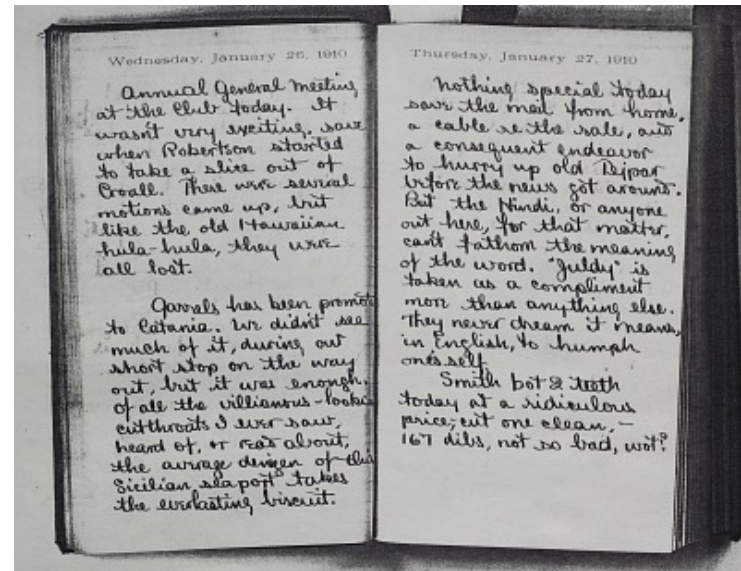 Wednesday, January 26, 1910
Annual General Meeting
at the Club today. It
wasn't very exciting, save
when Robertson started
to take a slice out of
Croall. There were several
motions came up, but
like the old Hawaiian
hula-hula, they were
all lost.
Garrels has been promote
to Catania. We didn't see
much of it, during our
short stop on the way
out, but it was enough.
Of all the villianous-lookin
cutthroats I ever saw,
heard of, or read about,
the average denizen of this
Sicilian seaport takes
the everlasting biscuit.
Thursday, January 27, 1910
Nothing special today
save the mail from home,
a cable re the sale, and
a consequent endeavor
to hurry up old Tejpar
before the news got around.
But the Hindi, or anyone
out here, for that matter,
can't fathom the meaning
of the word. "Juldy" is
taken as a compliment
more than anything else.
They never dream it means,
in English, to humph
one's self
Smith bot 2 teeth
today at a ridiculous
price, cut one clean, -
167 dibs, not so bad, wot?